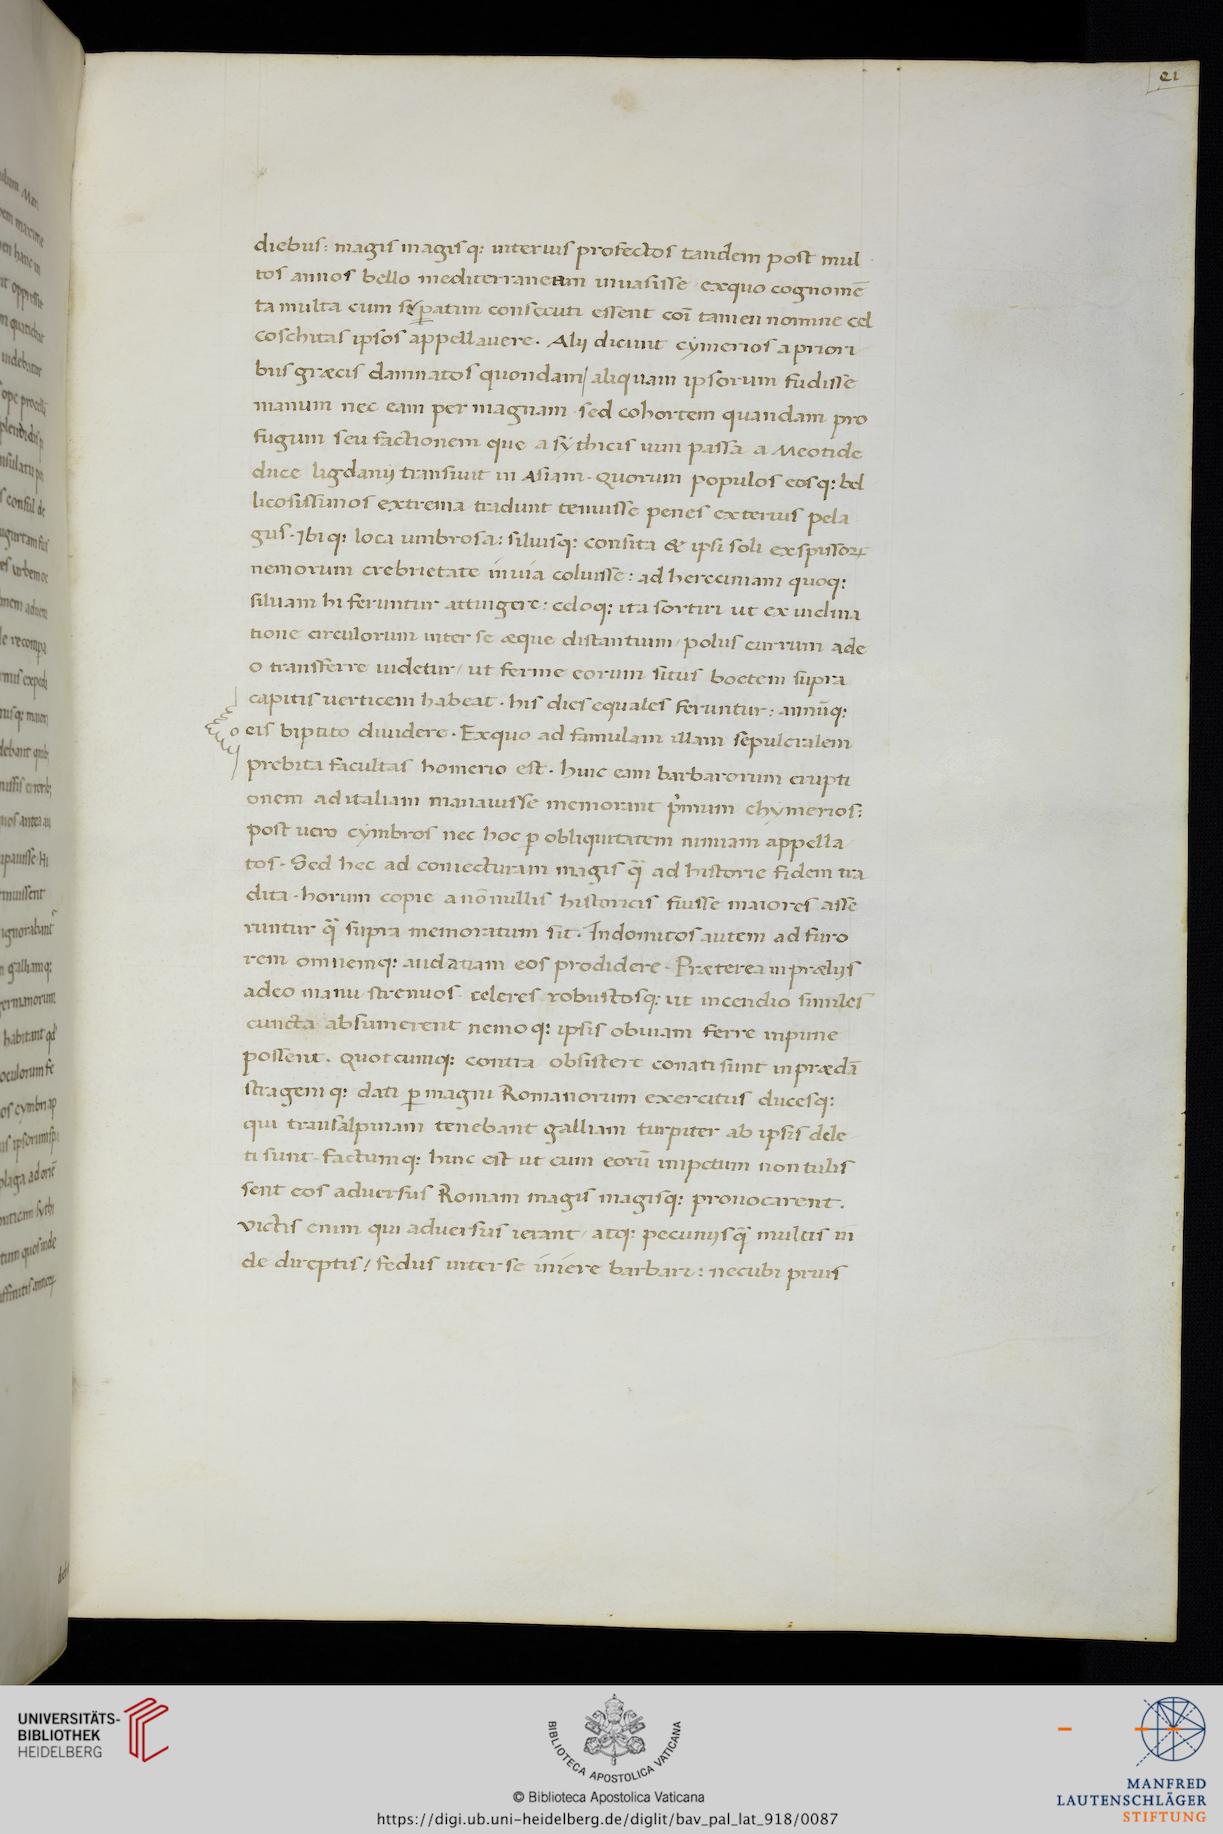 21
diebus: magis magisq: ulterius profectos tandem post mul
tos annos bello mediterraneam inuasisse exquo cognomē
ta multa cum seꝑatim consecuti essent coī tamen nomine cel
coschitas ipsos appellauere. Alij dicunt cymerios a priori
bus græcis damnatos quondam/ aliquam ipsorum fudisse
manum nec eam per magnam sed cohortem quandam pro
fugum seu factionem que a sythicis uim passa a Meotide
duce ligdanij transiuit in Asiam. Quorum populos eosq: bel
licosissimos extrema tradunt tenuisse penes exterius pela
gus. Ibi q: loca umbrosa: siluisq: consita & ipsi soli exspissoꝝ
nemorum crebrietate inuia coluisse: ad herciniam quoq:
siluam hi feruntur attingere: celoq: ita sortiri ut ex inclina
tione circulorum inter se æque distantium/ polus currum ade
o transferre uidetur/ ut ferme eorum situs boetem supra
capitis uerticem habeat. his dies equales feruntur: annūq:
eis biptito diuidere. Exquo ad famulam illam sepulcralem
prebita facultas homerio est. hinc eam barbarorum erupti
onem ad italiam manauisse memorant p̄mum chymerios:
post uero cymbros nec hoc ꝑ obliquitatem nimiam appella
tos. Sed hec ad coniecturam magis q̄ ad historie fidem tra
dita. horum copie a nōnullis historicis fuisse maiores asse
runtur q̄ supra memoratum sit. Indomitos autem ad furo
rem omnemq: audatiam eos prodidere. Præterea in prælijs
adeo manu strenuos celeres robustosq: ut incendio similes
cuncta absumerent nemo q: ipsis obuiam ferre inpune
possent. Quotcumq: contra obsistere conati sunt in prædā
stragem q: dati ꝑ magni Romanorum exercitus ducesq:
qui transalpinam tenebant galliam turpiter ab ipsis dele
ti sunt. factumq: hinc est ut cum eorū impetum non tulis
sent eos aduersus Romam magis magisq: prouocarent.
victis enim qui aduersus ierant/ atq: pecunijsq̄ multis in
de direptis/ fedus inter se iniere barbari: necubi prius
UNIVERSITÄTS-
BIBLIOTHEK
HEIDELBERG
BIBLIOTECA APOSTOLICA VATICANA
© Biblioteca Apostolica Vaticana
https://digi.ub.uni-heidelberg.de/diglit/bav_pal_lat_918/0087
MANFRED
LAUTENSCHLÄGER
STIFTUNG